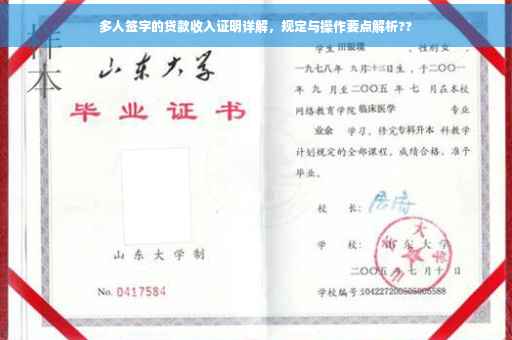 多人签字的贷款收入证明详解，规定与操作要点解析??
样本
山东大学
毕业证书
山东大学制
No. 0417584
学生田银環，性别女，
一九七八年 九月十三日生，于二〇〇一
年 九 月至二〇〇五 年 七 月在本校
网络教育学院 临床医学 专业
业余 学习，修完专科升本 科教学
计划规定的全部课程，成绩合格，准予
毕业。
校 长：
学 校：山东大学
二〇〇五 年 七 月 十 日
学校编号：104227200505005588